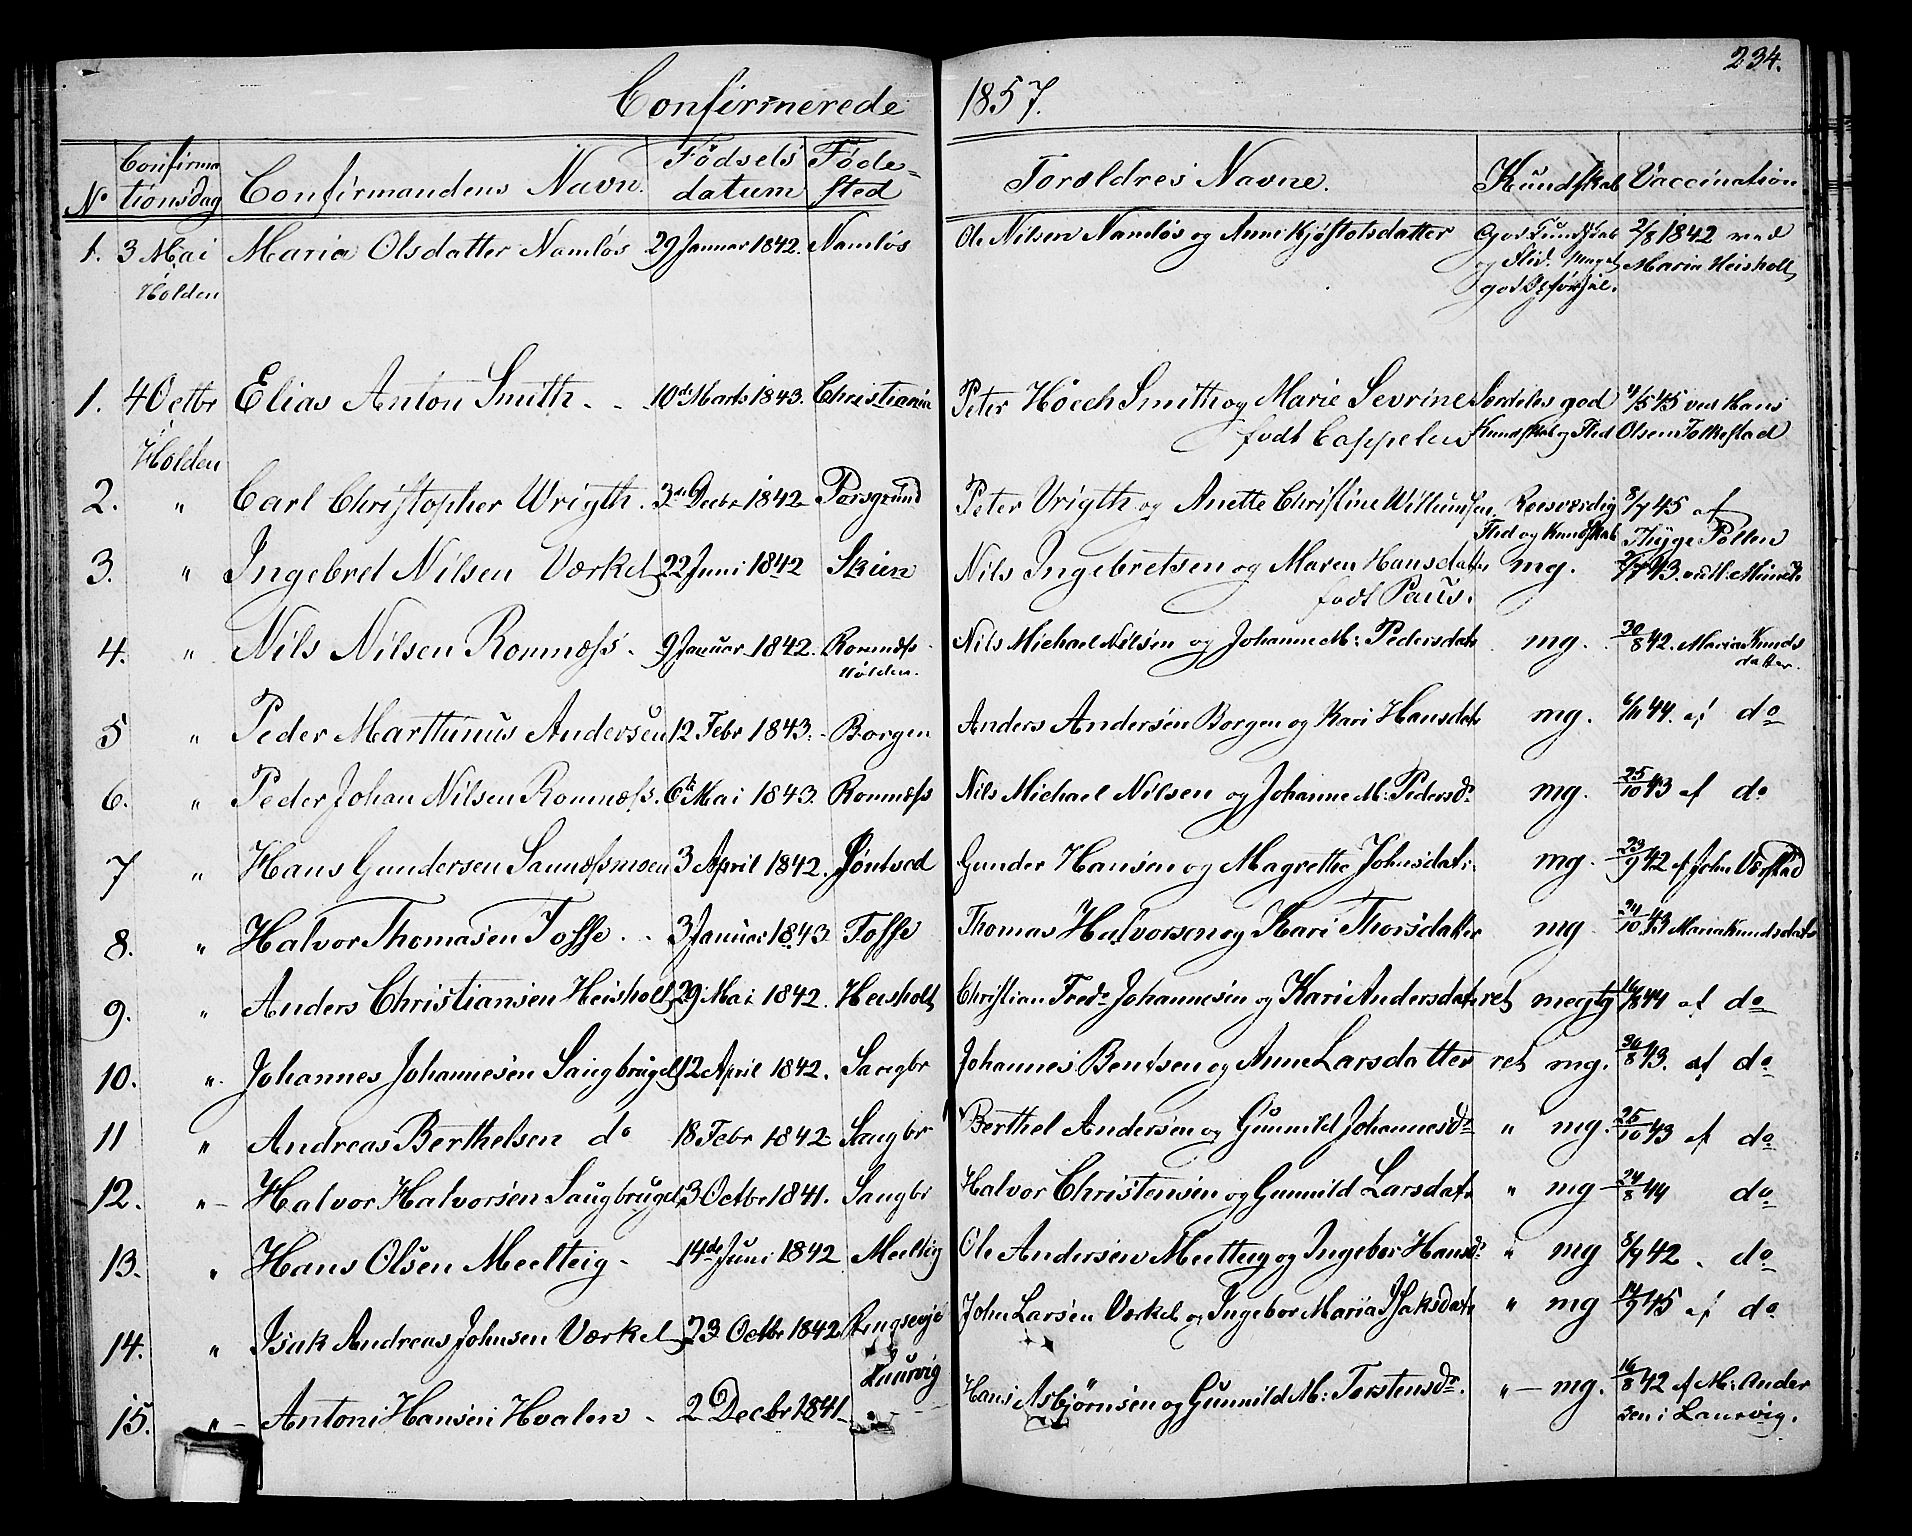 234.
Confirmerede 1857.
No Confirmationsdag Confirmandens Navn. Fødsels datum Fødested Forældres Navne. Kundskab Vaccination
1. 3 Mai Maria Olsdatter Namløs 29 Januar 1842. Namløs Ole Nilsen Namløs og Anne Kjøstolsdatter God Kundskab 2/8 1842 ved
Holden og Flid. Meget Maria Heisholt
god Opførsel.
1. 4 Octbr Elias Anton Smith. 10de Marts 1843. Christiania Peter Höech Smith og Marie Sevrine Serdeles god 4/5 45 ved Hans
Holden født Cappelen Kundskab og Flid Olsen Folkestad
2. " Carl Christopher Wrigth. 3de Decbr 1842 Porsgrund Peter Vrigth og Anette Christine Willumsen. Roesværdig 8/7 45 af
Flid og Kundskab Thyge Pollen
3. " Ingebret Nilsen Værket 22 Juni 1842 Skien Nils Ingebretsen og Maren Hansdatter mg. 43. ved M. Münch
født Paus.
4. " Nils Nilsen Romnæss. 9 Januar 1842. Romnæss Nils Michael Nilsen og Johanne M: Pedersdatr mg. 30/8 42. Maria Knuds
Holden. datter.
5 " Peder Marttunus Andersen 12 Febr 1843. Borgen Anders Andersen Borgen og Kari Hansdatr mg. 6/11 44. af do
6. " Peder Johan Nilsen Romnæss. 6te Mai 1843. Romnæss Nils Michael Nilsen og Johanne M: Pedersdr mg. 25/10 43 af do
7 " Hans Gundersen Sannæssmoen 3 April 1842. Jøntved Gunder Hansen og Magrethe Johnsdatr mg. 23/9 42 af John Værstad
8. " Halvor Thomasen Tosse. 3 Januar 1843 Tosse Thomas Halvorsen og Kari Thorsdatter mg 24/10 43 Maria Knudsdatr
9. " Anders Christiansen Heisholt 29 Mai 1842. Heisholt Christian Fredr Johannesen og Kari Andersdatr ret megtg 16/8 44 af do
10. " Johannes Johannesen Saugbruget 12 April 1842. Saugbr Johannes Bentsen og Anne Larsdatter ret mg. 30/8 43. af do
11 " Andreas Berthelsen do 18 Febr 1842 Saugbr Berthel Andersen og Gunnild Johannesdr " mg. 25/10 43 af do
12. " Halvor Halvorsen Saugbruget 3 Octbr 1841. Saugbr Halvor Christensen og Gunnild Larsdatr " mg 24/8 44 do
13. " Hans Olsen Meelteig. 14de Juni 1842 Meeltig Ole Andersen Meelteig og Ingebor Hansdr " mg 8/9 42. do
14. " Isak Andreas Johnsen Værket 23 Octbr 1842 John Larsen Værket og Ingebor Maria Isaksdatr " mg 14/9 45 af do
15. " Antoni Hansen Hvalen. 2 Decbr 1841 Laurvig Hans Asbjørnsen og Gunnild M: Torstensdr. " mg. 16/8 42 af M: Ander
sen i Laurvig.